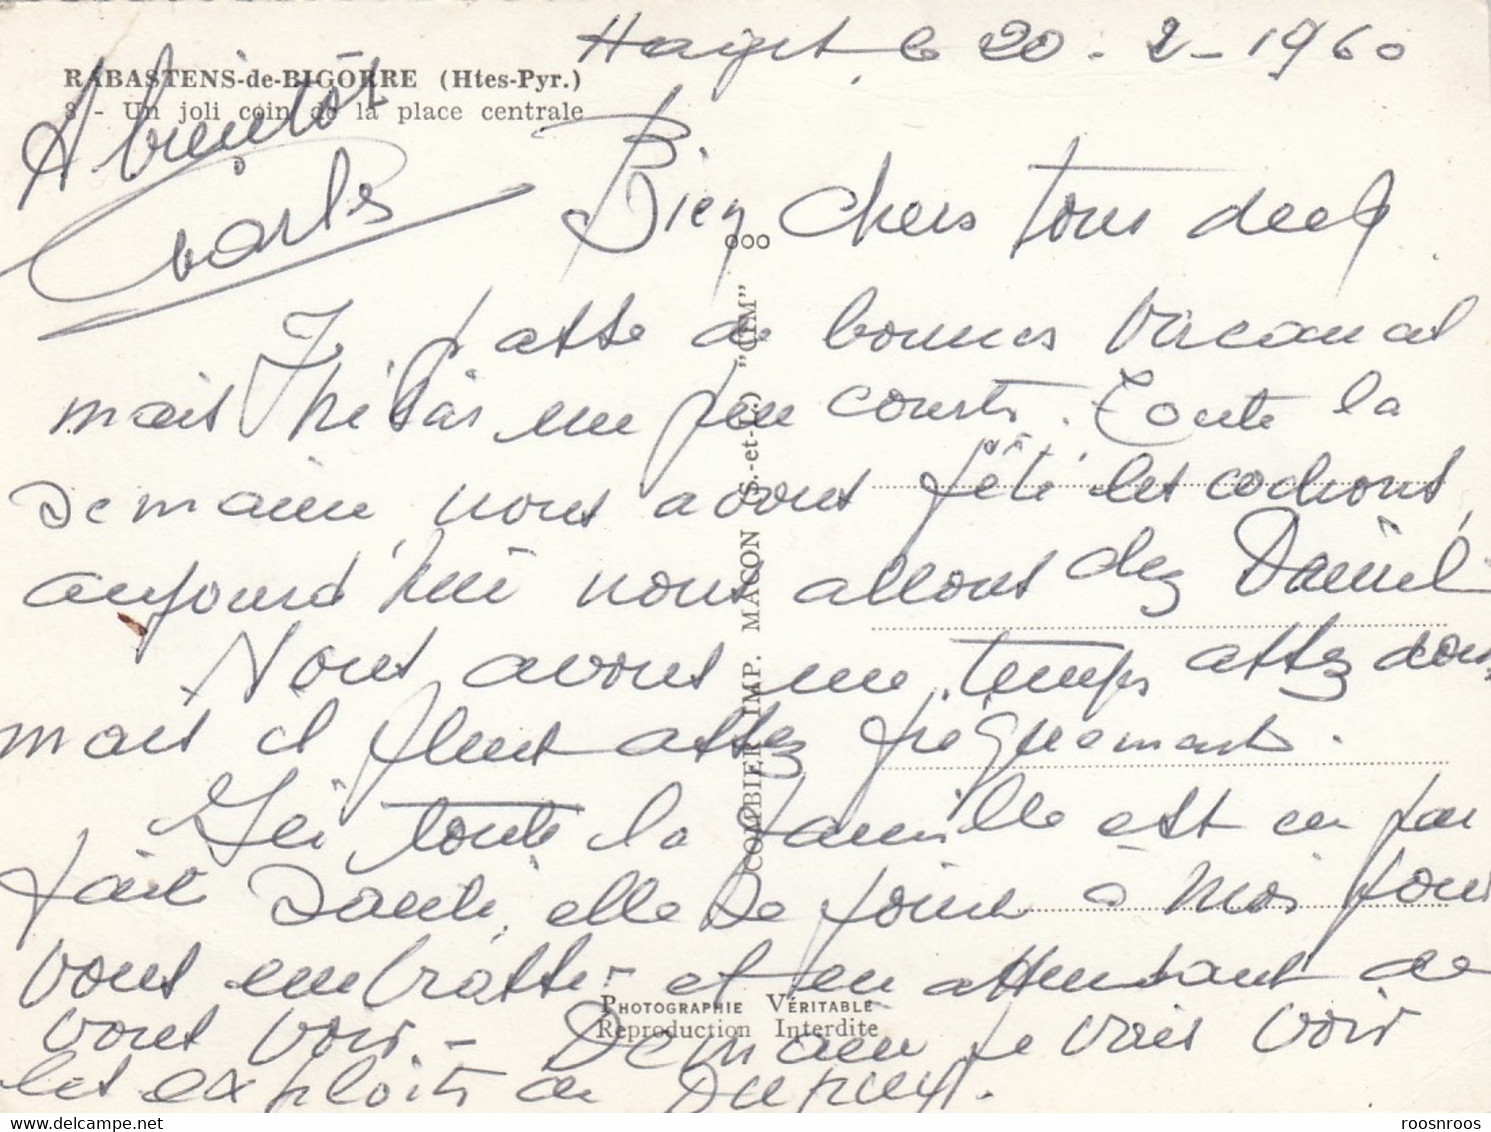 Haget le 20-2-1960
RABASTENS-de-BIGORRE (Htes-Pyr.)
3 - Un joli coin de la place centrale
A bientôt
Charles
Bien chers tous deux
Je passe de bonnes vacances
mais hélas un peu courts. Toute la
semaine nous avons fêté les cochons,
aujourd'hui nous allons chez Daniel
Nous avons une temps assez doux
mais il pleut assez fréquement.
Ici toute la famille est en par
faite santé, elle se joint à moi pour
vous embrasser et en attendant de
vous voir - Demain je vais voir
les exploits de
ooo
COMBIER IMP. MACON (S.-et-L.) "CIM"
PHOTOGRAPHIE VÉRITABLE
Reproduction Interdite
roosnroos